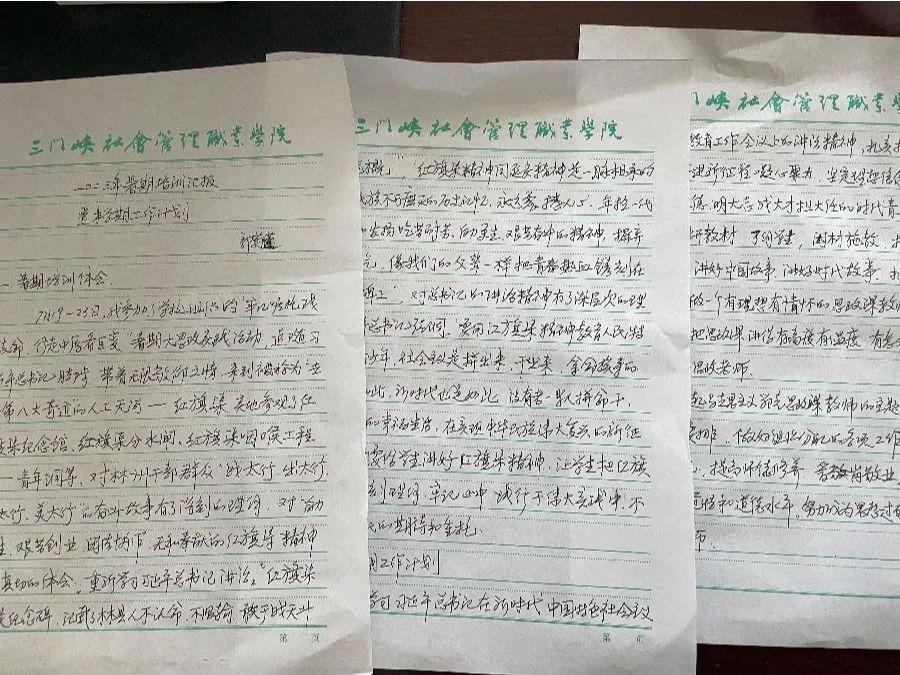 三门峡社會管理職業學院
二〇二三年暑期培训汇报
暨本学期工作计划
一、暑期培训体会
7月19-23日,我参加了学校组织的“牢记
革命,传走中原看巨变”暑期大思政实践活动,追随习
近平总书记的脚步,带着无限敬仰之情,来到被称为“世
第八大奇迹的人工天河——红旗渠,实地参观了红
旗渠纪念馆、红旗渠分水闸、红旗渠咽喉工程
——青年洞等,对林州干部群众“战太行、出太行、
太行、美太行”的奋斗故事有了深刻的理解,对“自力
生、艰苦创业、团结协作、无私奉献”的红旗渠精神
真切的体会。重新学习习近平总书记讲话:“红旗渠
纪念碑,记载了林县人不认命、不服输、敢于战天斗
第 页
三门峡社會管理職業學院
,红旗渠精神同延安精神是一脉相承的
族不可磨灭的历史记忆,永远震撼人心。年轻一代
发扬吃苦耐劳、自力更生、艰苦奋斗的精神,摒弃
气,像我们的父辈一样把青春热血镌刻在
”,对总书记的讲话精神有了深层次的理
总书记强调,要用红旗渠精神教育人民特
少年,社会主义是拼出来、干出来、拿命换来的
此,新时代也是如此。没有老一辈人拼命干,
的幸福生活,在实现中华民族伟大复兴的新征
要给学生讲好红旗渠精神,让学生把红旗
刻理解、牢记心中、践行于伟大实践中,不
的期待和重托。
工作计划
学习习近平总书记在新时代中国特色社会主义
第 页
門峡社會管理職業學
教育工作会议上的讲话精神,扎实
进新征程、凝心聚力,坚定理想信
德、明大志、成大才、担大任的时代青
研教材、了解学生、因材施教,
讲好中国故事、讲好时代故事,
做一个有理想有情怀的思政课教
把思政课讲得有高度、有温度、有
思政老师。
马克思主义学院思政课教师的主题
安排,做好组织分配的各项工作
,提高师德修养,爱岗敬业,
觉悟和道德水平,努力成为思想过
师。